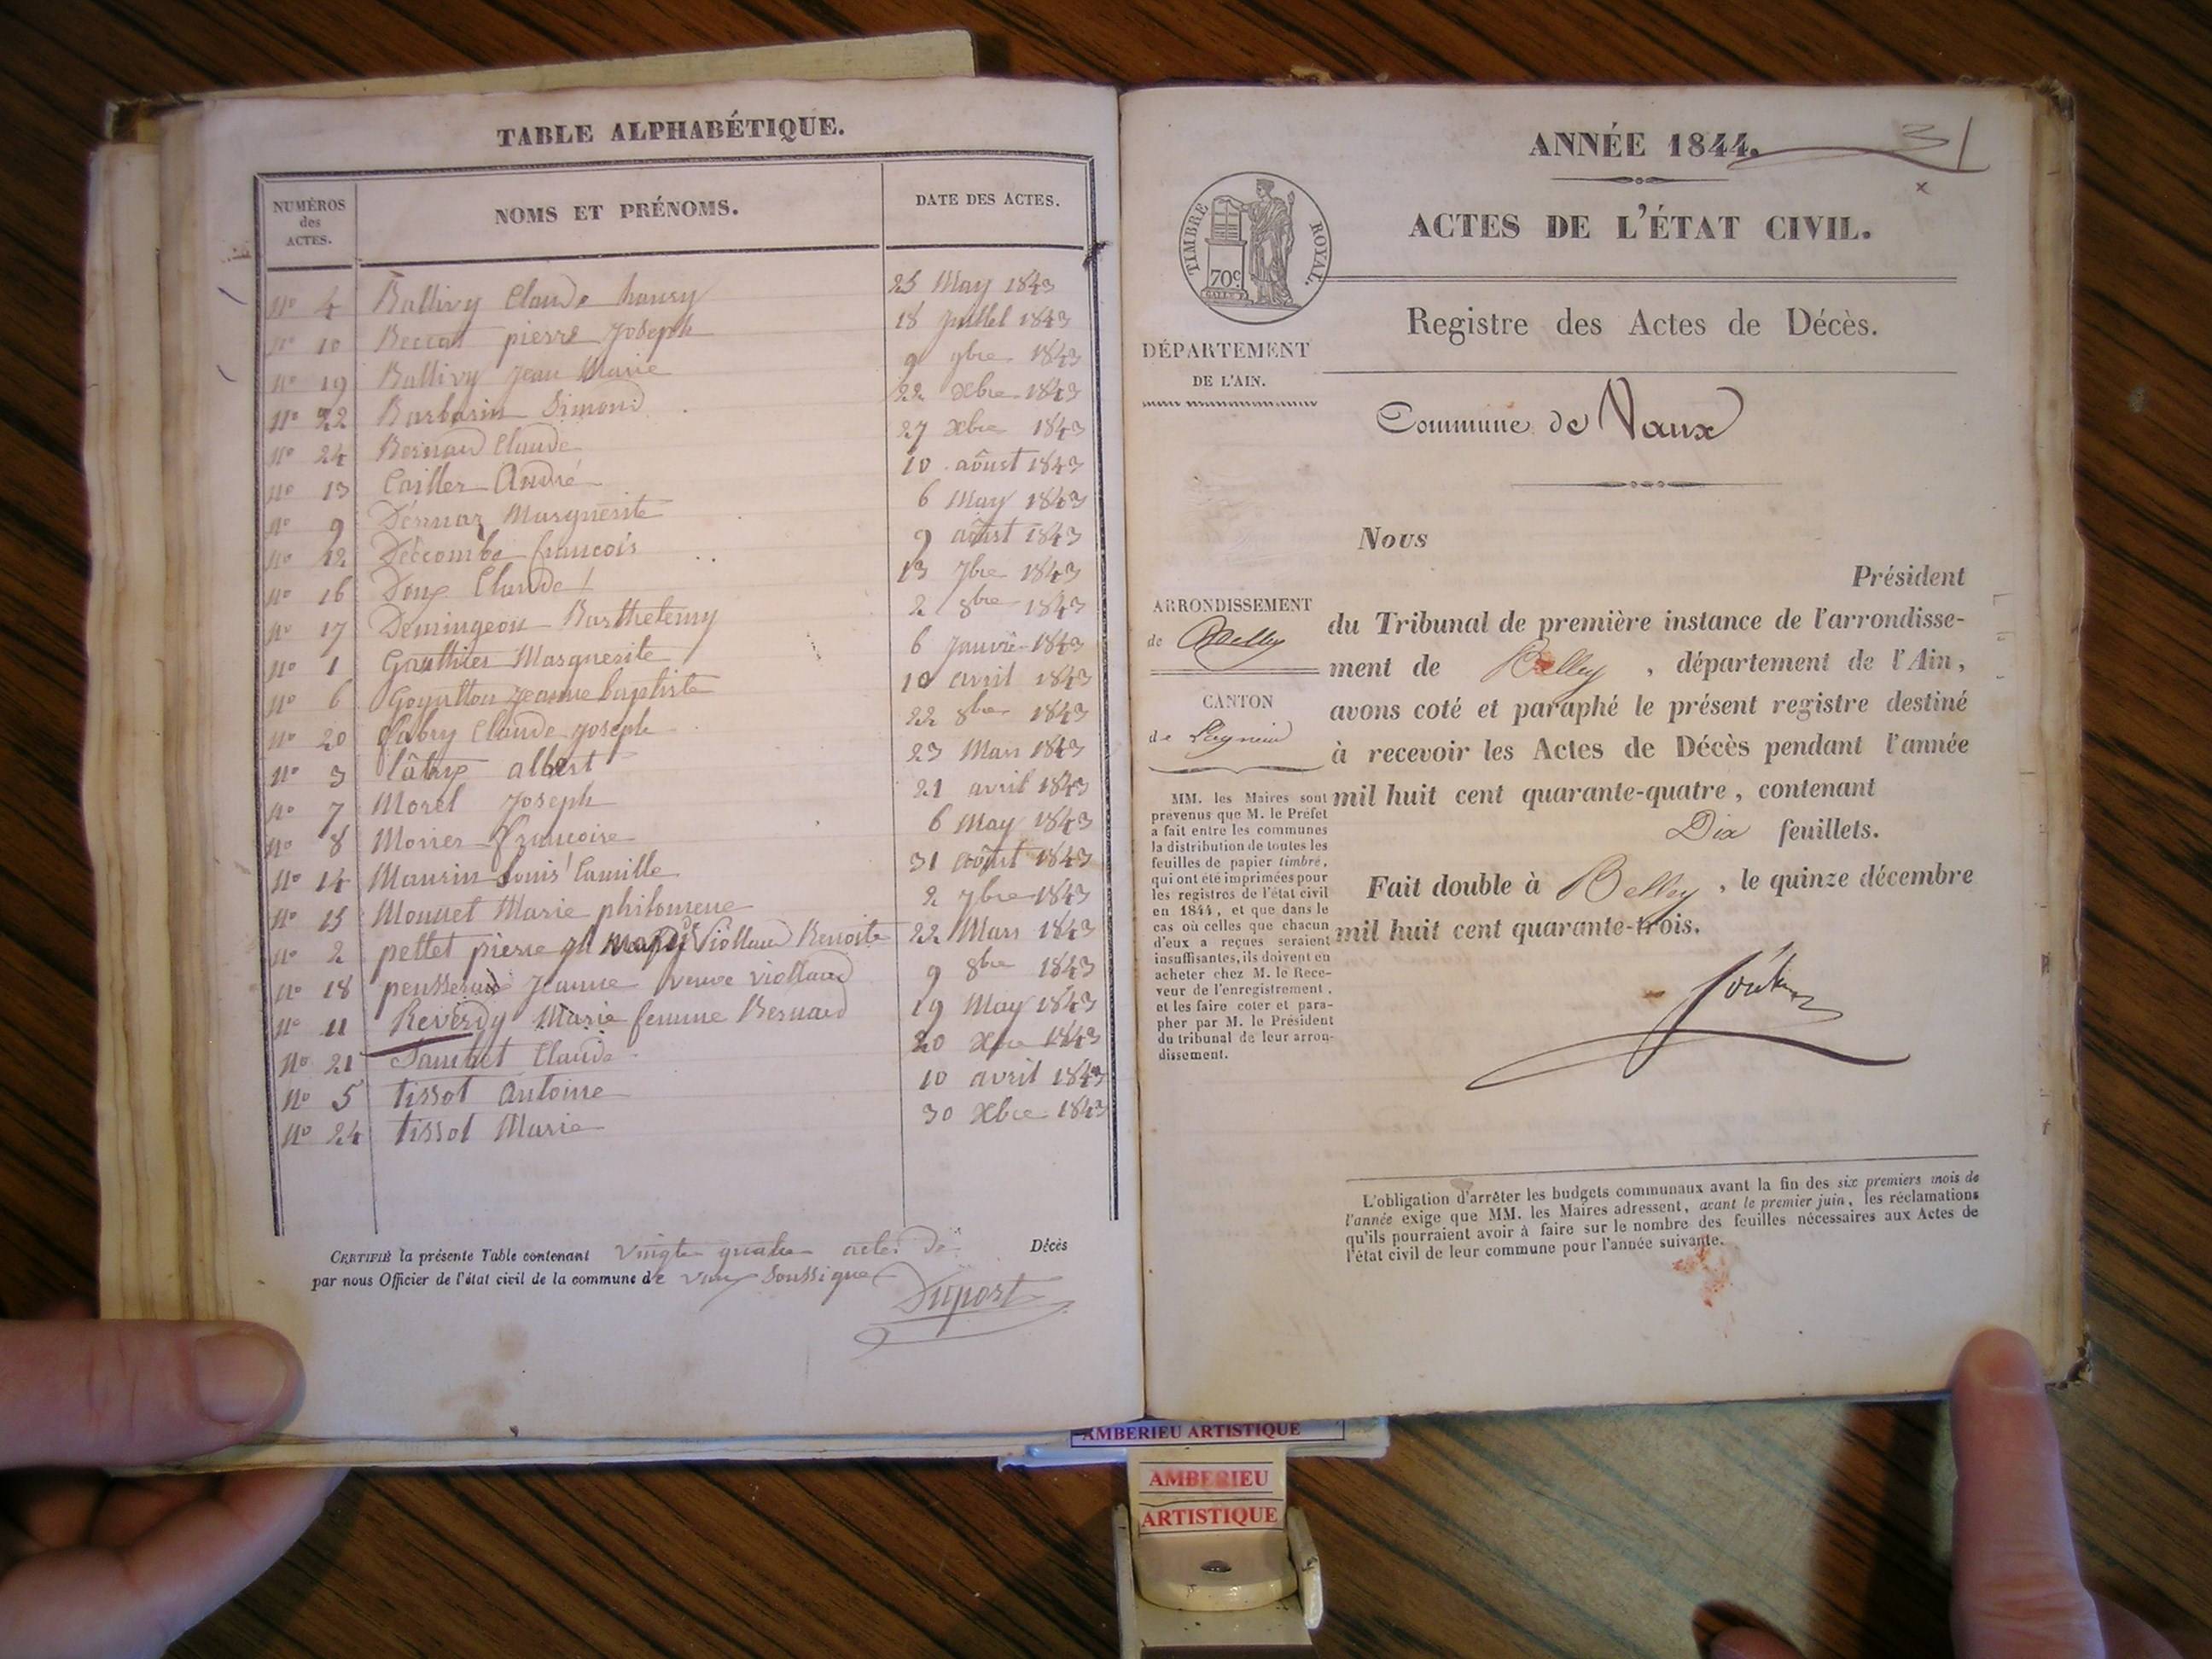 TABLE ALPHABÉTIQUE.
NUMÉROS des ACTES. NOMS ET PRÉNOMS. DATE DES ACTES.
No 4 Ballivy Claude 25 May 1843
No 10 pierre Joseph 18 Juillet 1843
No 19 Ballivy Jean Marie 9 9bre 1843
No 22 Barbarin Simond 22 Xbre 1843
No 24 Bernard Claude 27 Xbre 1843
No 13 Cailler André 10 aôust 1843
No 9 Marguerite 6 May 1843
No 12 Descombe francois 9 aôust 1843
No 16 Doux Claude 13 7bre 1843
No 17 Demingeon Barthelemy 2 8bre 1843
No 1 Gauthier Marguerite 6 Janvier 1843
No 6 Jeanne baptiste 10 avril 1843
No 20 Claude Joseph 22 8bre 1843
No 3 albert 23 Mars 1843
No 7 Morel Joseph 21 avril 1843
No 8 Francoise 6 May 1843
No 14 Maurin Louis Camille 31 aôust 1843
No 15 Monnet Marie philomene 2 7bre 1843
No 2 pettet pierre Viollaud Benoite 22 Mars 1843
No 18 Jeanne veuve viollaud 9 8bre 1843
No 11 Reverdy Marie femme Bernard 19 May 1843
No 21 Claude 20 Xbre 1843
No 5 tissot Antoine 10 avril 1843
No 24 tissot Marie 30 Xbre 1843
CERTIFIÉ la présente Table contenant vingte quatre actes de Décès
par nous Officier de l'état civil de la commune de vaux soussigné
Duport
31
ANNÉE 1844.
x
ACTES DE L'ÉTAT CIVIL.
TIMBRE ROYAL.
70c
Registre des Actes de Décès.
DÉPARTEMENT
DE L'AIN.
Commune de Vaux
Nous
Président
ARRONDISSEMENT
de Belley
CANTON
de Lagnieu
du Tribunal de première instance de l'arrondisse-
ment de Belley, département de l'Ain,
avons coté et paraphé le présent registre destiné
à recevoir les Actes de Décès pendant l'année
mil huit cent quarante-quatre, contenant
Dix feuillets.
Fait double à Belley, le quinze décembre
mil huit cent quarante-trois.
MM. les Maires sont
prévenus que M. le Préfet
a fait entre les communes
la distribution de toutes les
feuilles de papier timbré,
qui ont été imprimées pour
les registres de l'état civil
en 1844, et que dans le
cas où celles que chacun
d'eux a reçues seraient
insuffisantes, ils doivent en
acheter chez M. le Rece-
veur de l'enregistrement,
et les faire coter et para-
pher par M. le Président
du tribunal de leur arron-
dissement.
L'obligation d'arrêter les budgets communaux avant la fin des six premiers mois de
l'année exige que MM. les Maires adressent, avant le premier juin, les réclamations
qu'ils pourraient avoir à faire sur le nombre des feuilles nécessaires aux Actes de
l'état civil de leur commune pour l'année suivante.
AMBERIEU ARTISTIQUE
AMBERIEU
ARTISTIQUE